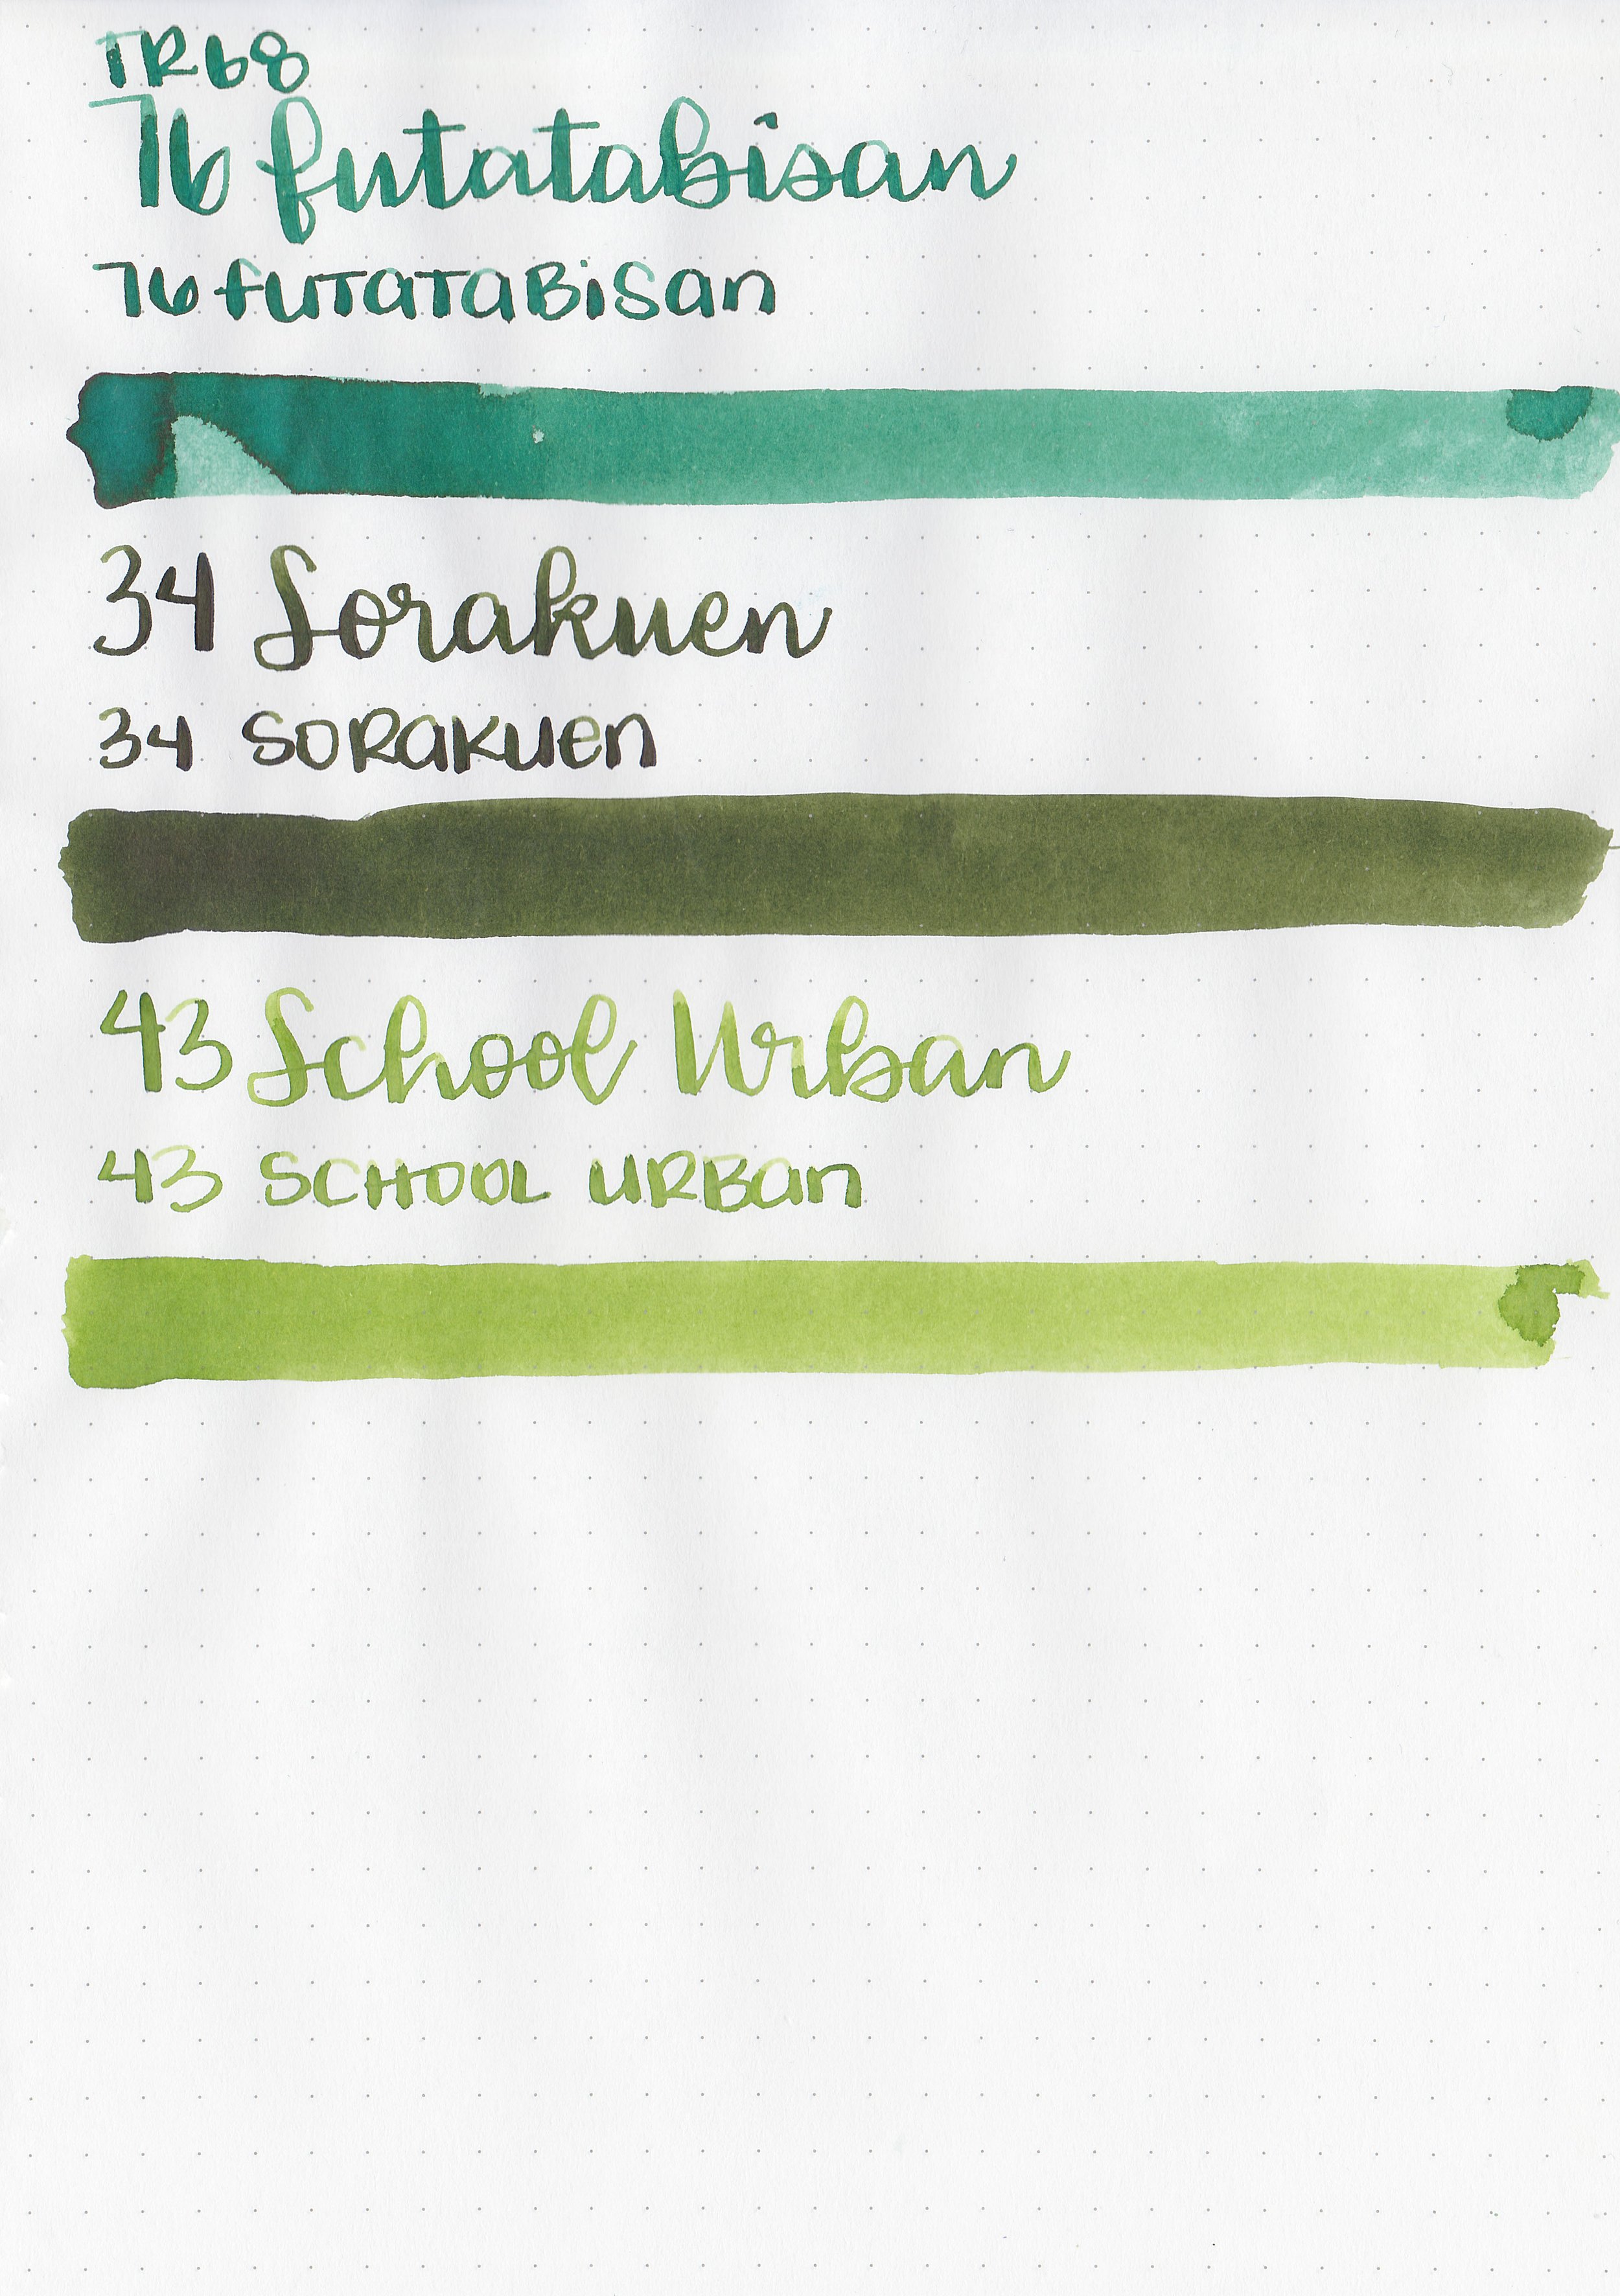 TR68
76 futatabisan
76 FUTATABISAN
34 Sorakuen
34 SORAKUEN
43 School Urban
43 SCHOOL URBAN